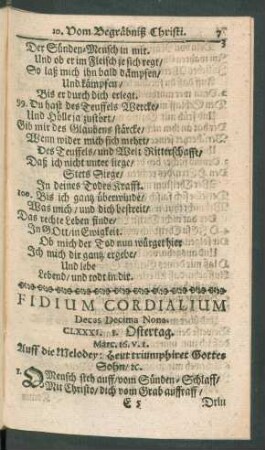 10. Vom Begräbniß Christi. 7
3
Der Sünden-Mensch in mir.
Und ob er im Fleisch je sich regt/
So laß mich ihn bald dämpfen/
Und kämpfen/
Bis er durch dich erlegt.
99. Du hast des Teuffels Wercke/
Und Hölle ja zustört/
Gib mir des Glaubens stärcke/
Wenn wider mich sich mehret/
Des Teuffels/ und Welt Ritterschafft/
Daß ich nicht unter liege/
Stets Siege/
In deines Todes Krafft.
100. Bis ich gantz überwinde/
Was mich/ und dich bestreit/
Das rechte Leben finde/
In GOtt/ in Ewigkeit.
Ob mich der Tod nun würget hier
Ich mich dir gantz ergebe/
Und lebe
Lebend/ und todt in dir.
FIDIUM CORDIALIUM
Decas Decima Nona.
CLXXXI. 1. Ostertag.
Marc. 16. v. 1.
Auff die Melodey: Heut triumphiret Gottes
Sohn/ ꝛc.
1. O Mensch steh auff/ vom Sünden-Schlaff/
Mit Christo/ dich vom Grab auffraff/
E 3 Drin